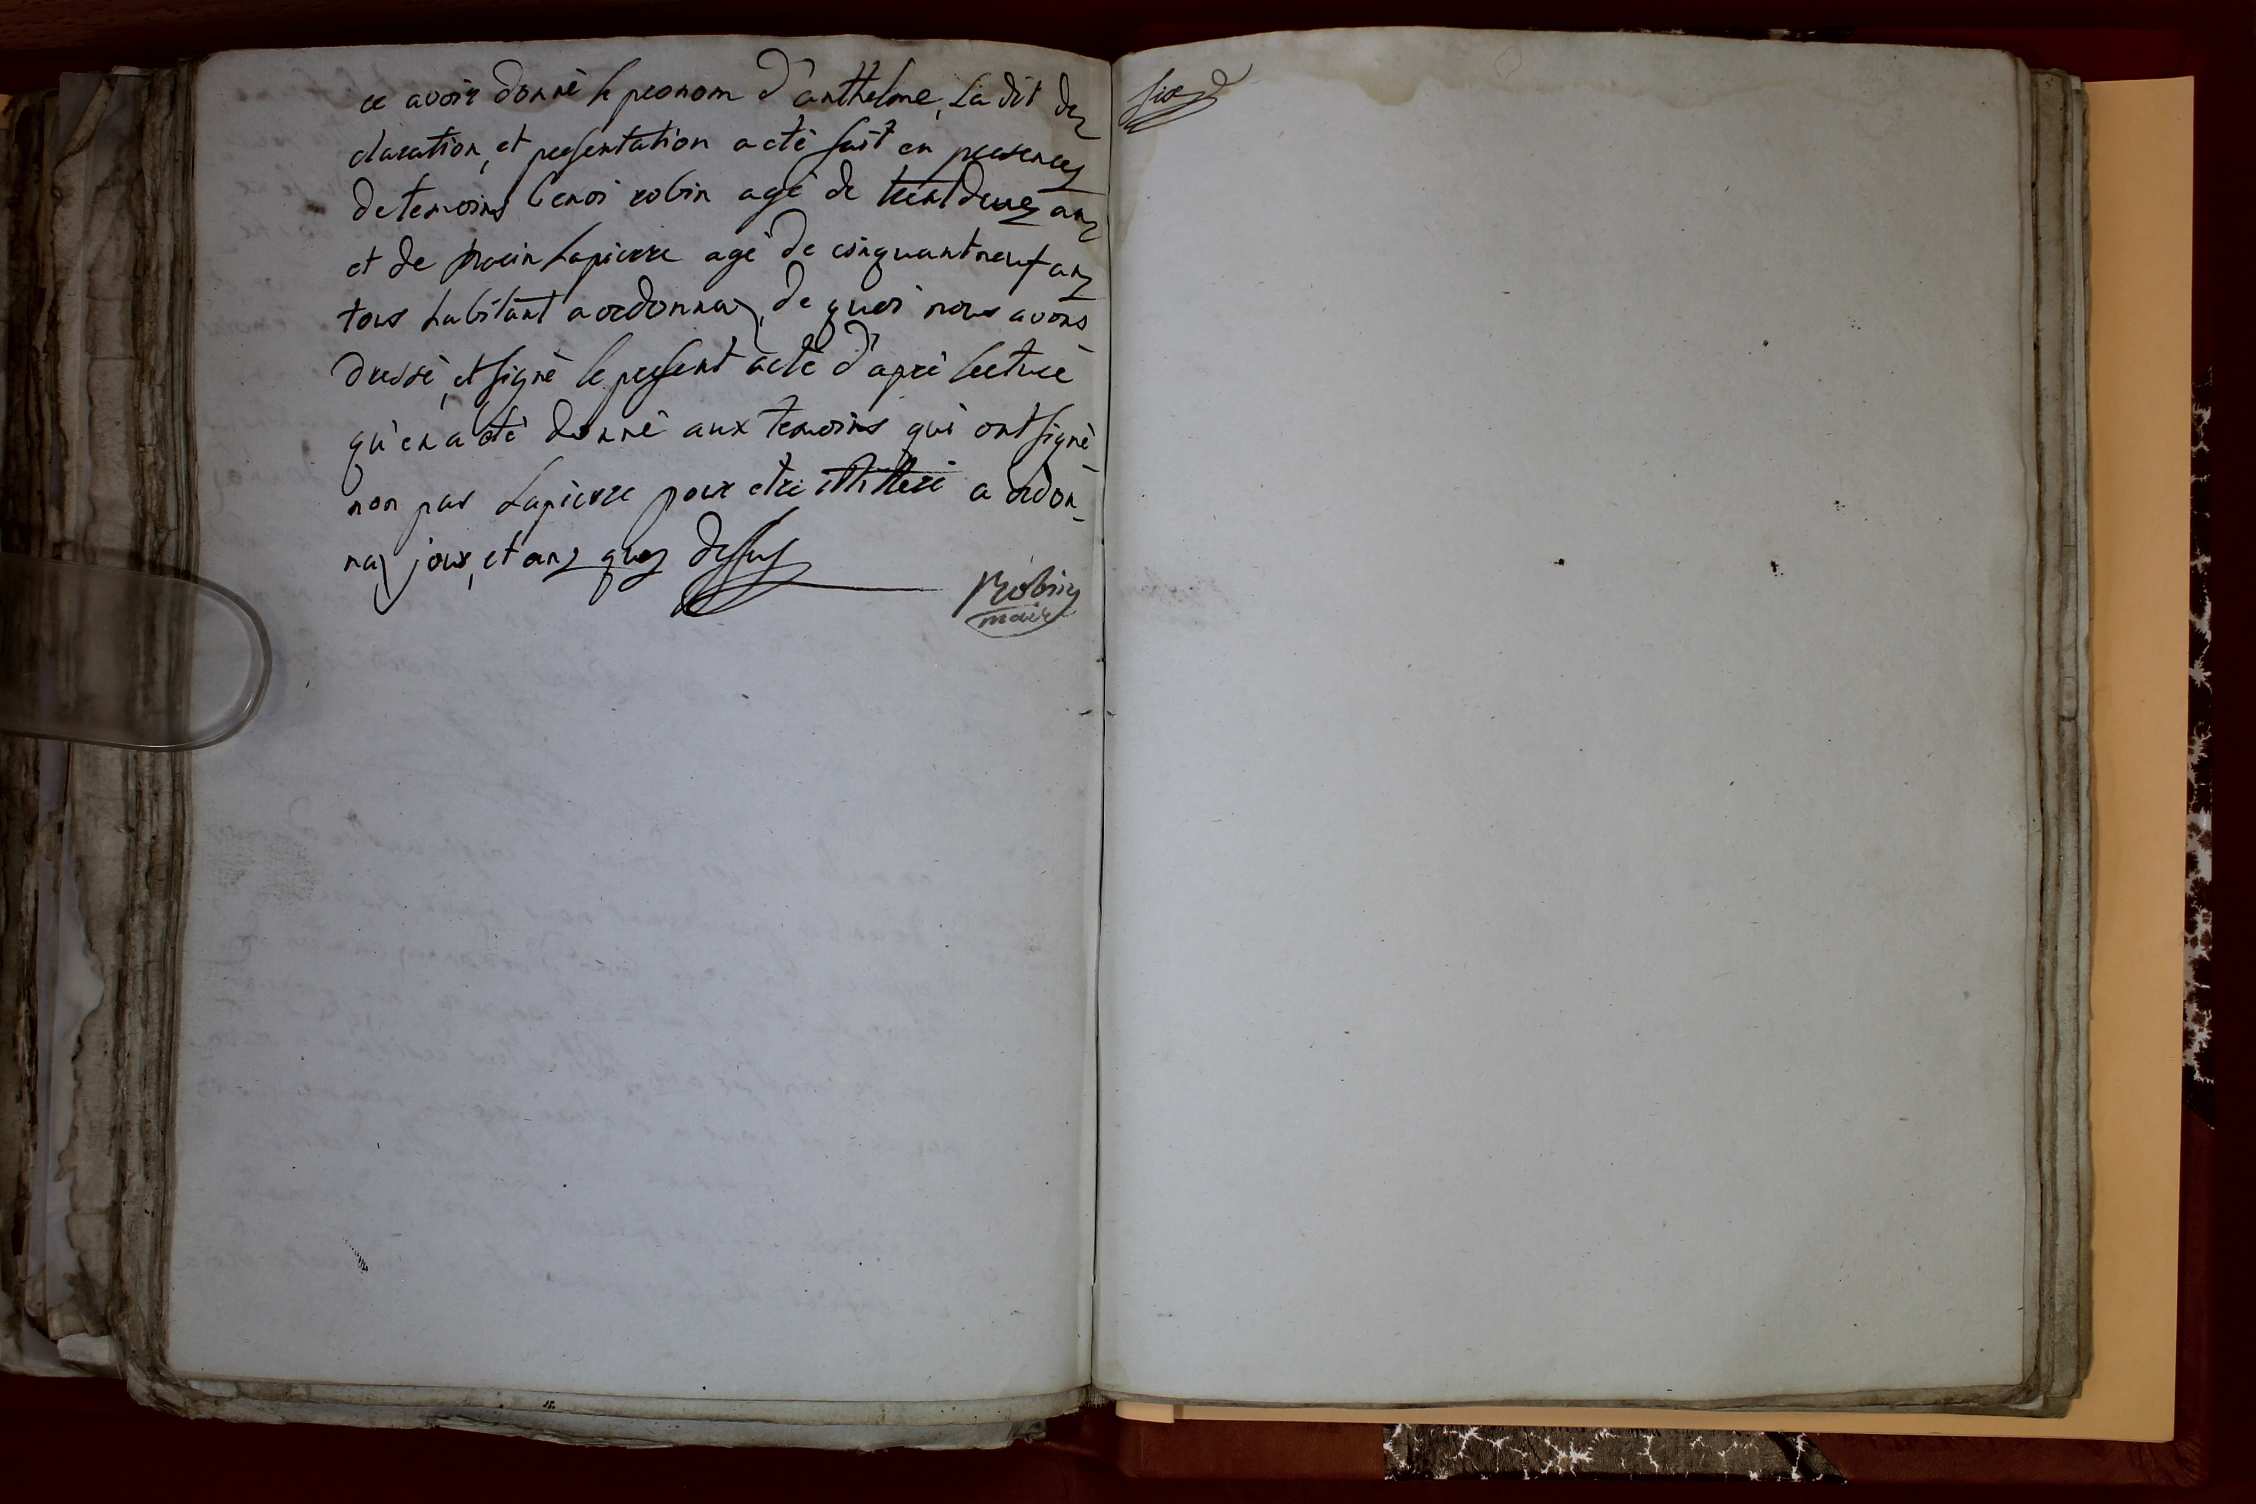 ce avoir donné le pronom d'anthelme, la dit de
claration, et presentation acté fait en presences
de temoins benoi robin agé de trent deux anz
et de Lapierre agé de cinquant neuf anz
tous habitant a ordonnaz, de quoi nous avons
dressé, et signé le present acte d'apré lecture
qu'en a été donné aux temoins qui ont signé
non pas Lapierre pour etre illitteré a ordon-
naz jour, et anz quez dessus
Robin
maire
six